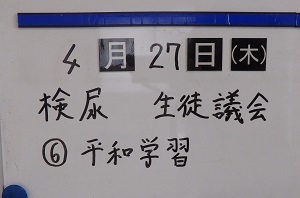 4月27日(木)
検尿 生徒議会
⑥平和学習